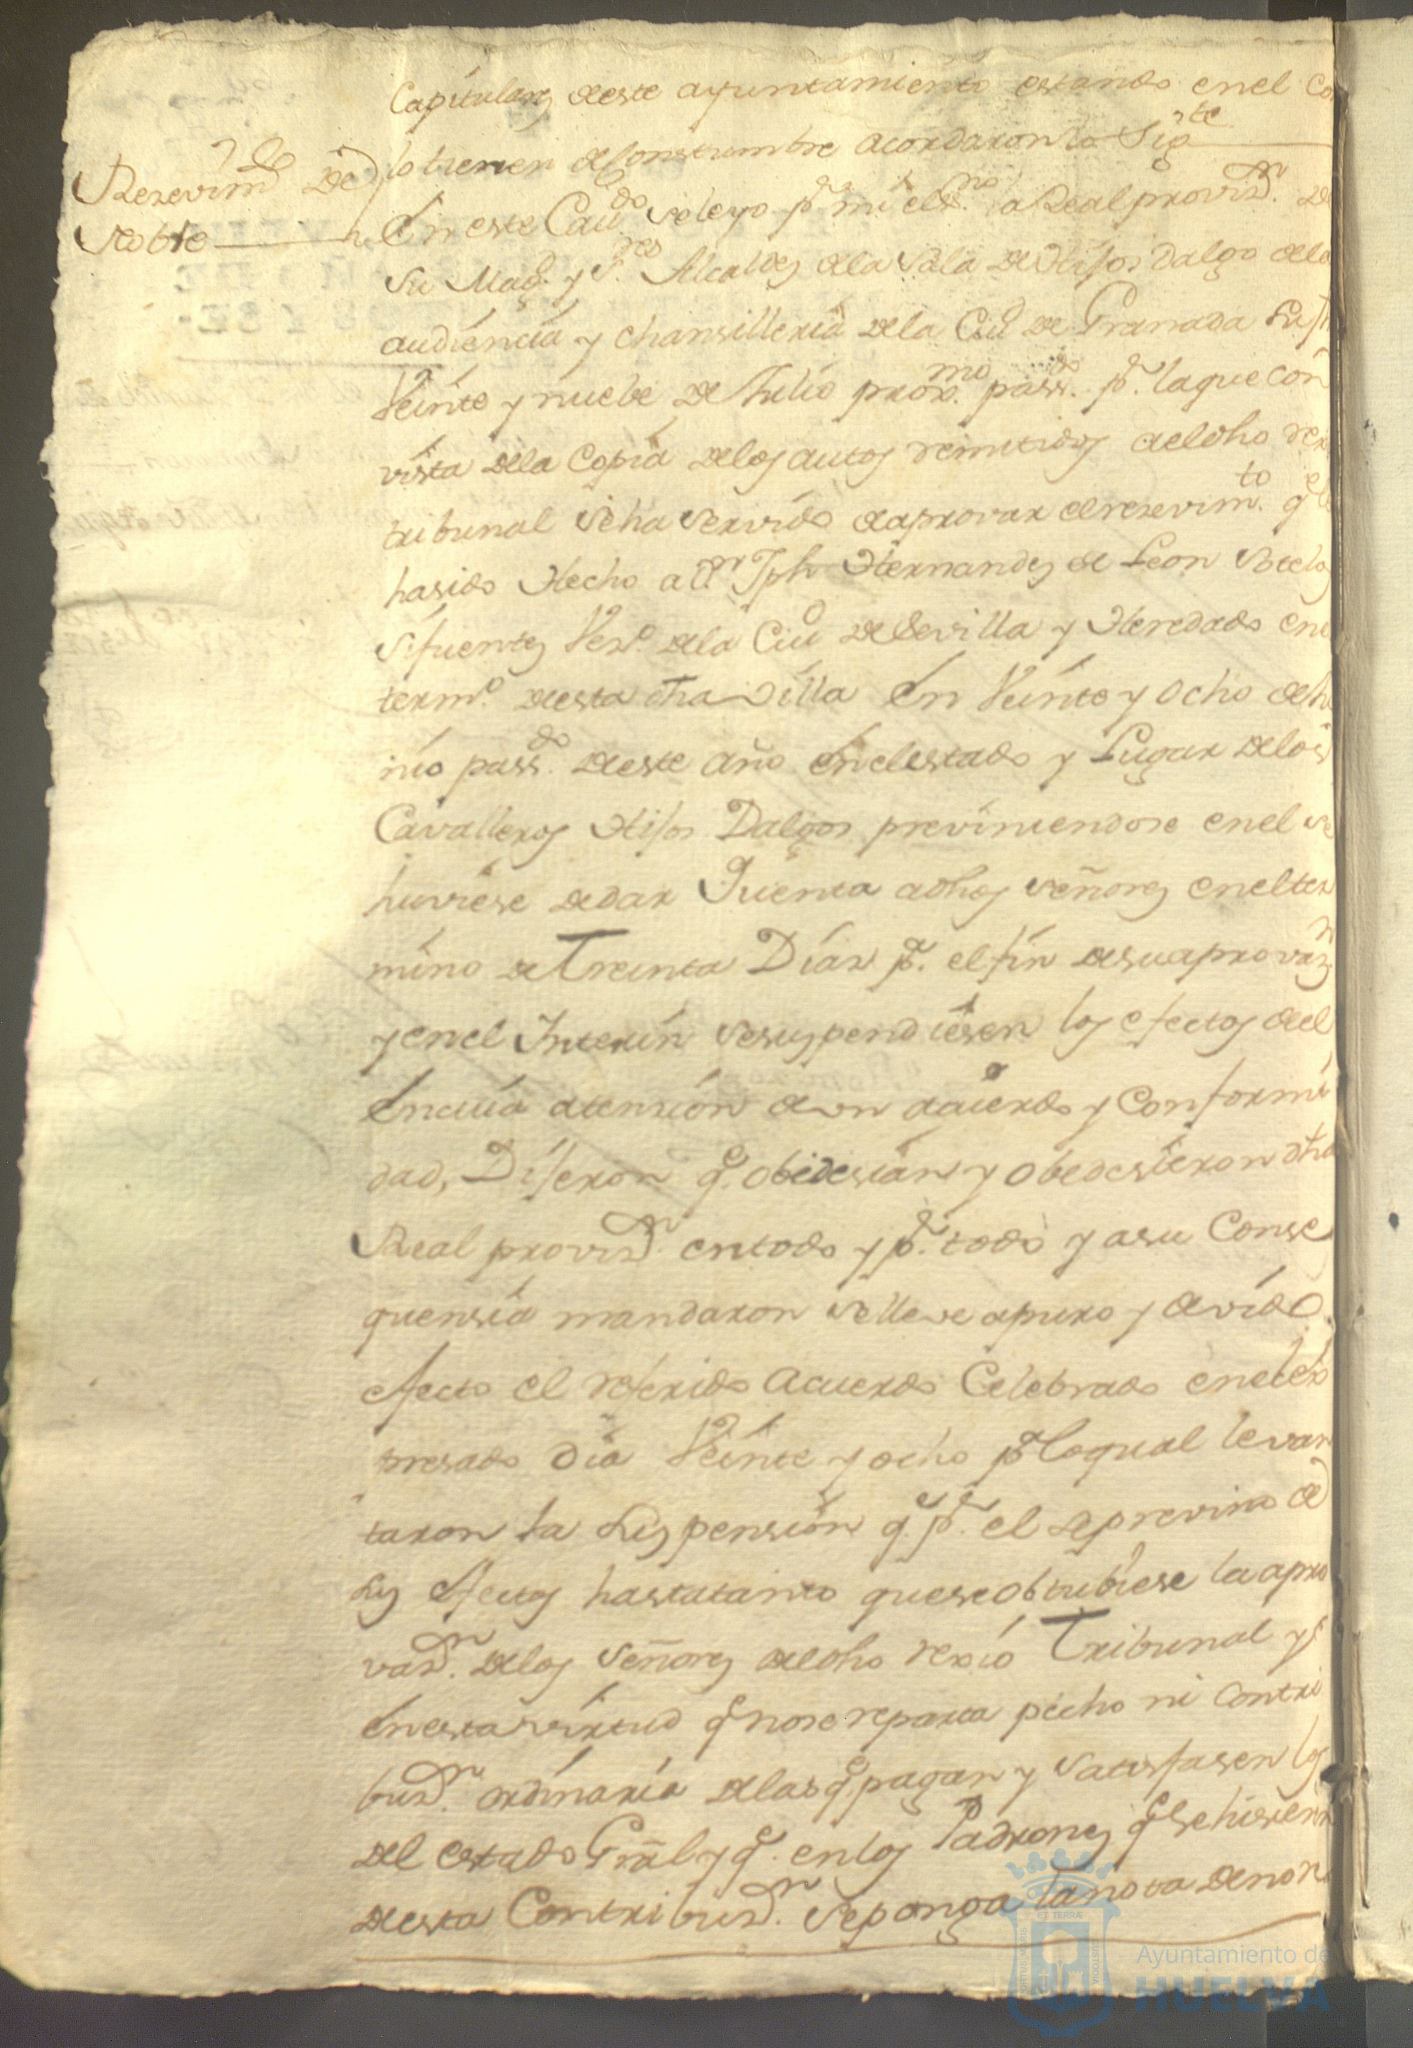 Capitulares deste ayuntamiento estando en el Co
lo tienen de Constumbre acordaron lo Sigte
Resevimdo De
Noble
En este Cavdo se leyo pr mi el esno la Real provisn de
Su Magd y Sres Alcaldes dela Sala de Hijos Dalgo dela
audiencia y chansilleria dela Ciud de Granada Su fha
Veinte y nuebe de Julio proxmo passdo pr la que con
vista dela Copia delos autos remitidos a el dho rex
tribunal se ha servido de aprovar el resevimto qe
hasido Hecho a Dn Jph Hernandes de Leon
Sifuentes Veso dela Ciud de Sevilla y Heredado en
termo desta dha villa En Veinte y Ocho de Ju
nio passdo deste año En el estado y Lugar delos
Cavalleros Hijos Dalgos previniendose en el se
huviese de dar Quenta a dhos señores en el ter
mino de Treinta Dias pa el fin de su aprovasn
y en el Interin se suspendiesen los efectos del
En cuia atension de un acuerdo y Conformi
dad, Dijeron qe Obedesian y Obedesieron dha
Real provisn en todo y pr todo y a su Conse
quensia mandaron se lleve a puro y devido
efecto el referido Acuerdo Celebrado en el ex
presado dia Veinte y ocho pr lo qual levan
taron la Suspension qe pr el se previno de
sus efectos hasta tanto que se Obtubiese la apro
vasn delos Señores de dho rexio Tribunal y
En esta virtud qe no se reparta pecho ni Contri
busn ordinaria delas qe pagan y satisfasen los
del estado Gral y qe en los Padrones qe se hisieren
desta Contribusn se ponga la nota de no
Ayuntamiento de
HUELVA